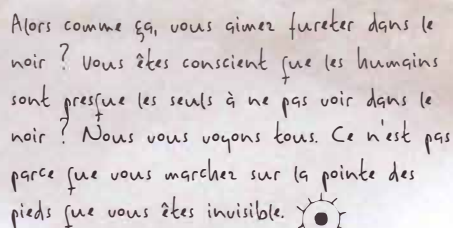 Alors comme ça, vous aimez fureter dans le
noir ? Vous êtes conscient que les humains
sont presque les seuls à ne pas voir dans le
noir ? Nous vous voyons tous. Ce n'est pas
parce que vous marchez sur la pointe des
pieds que vous êtes invisible.